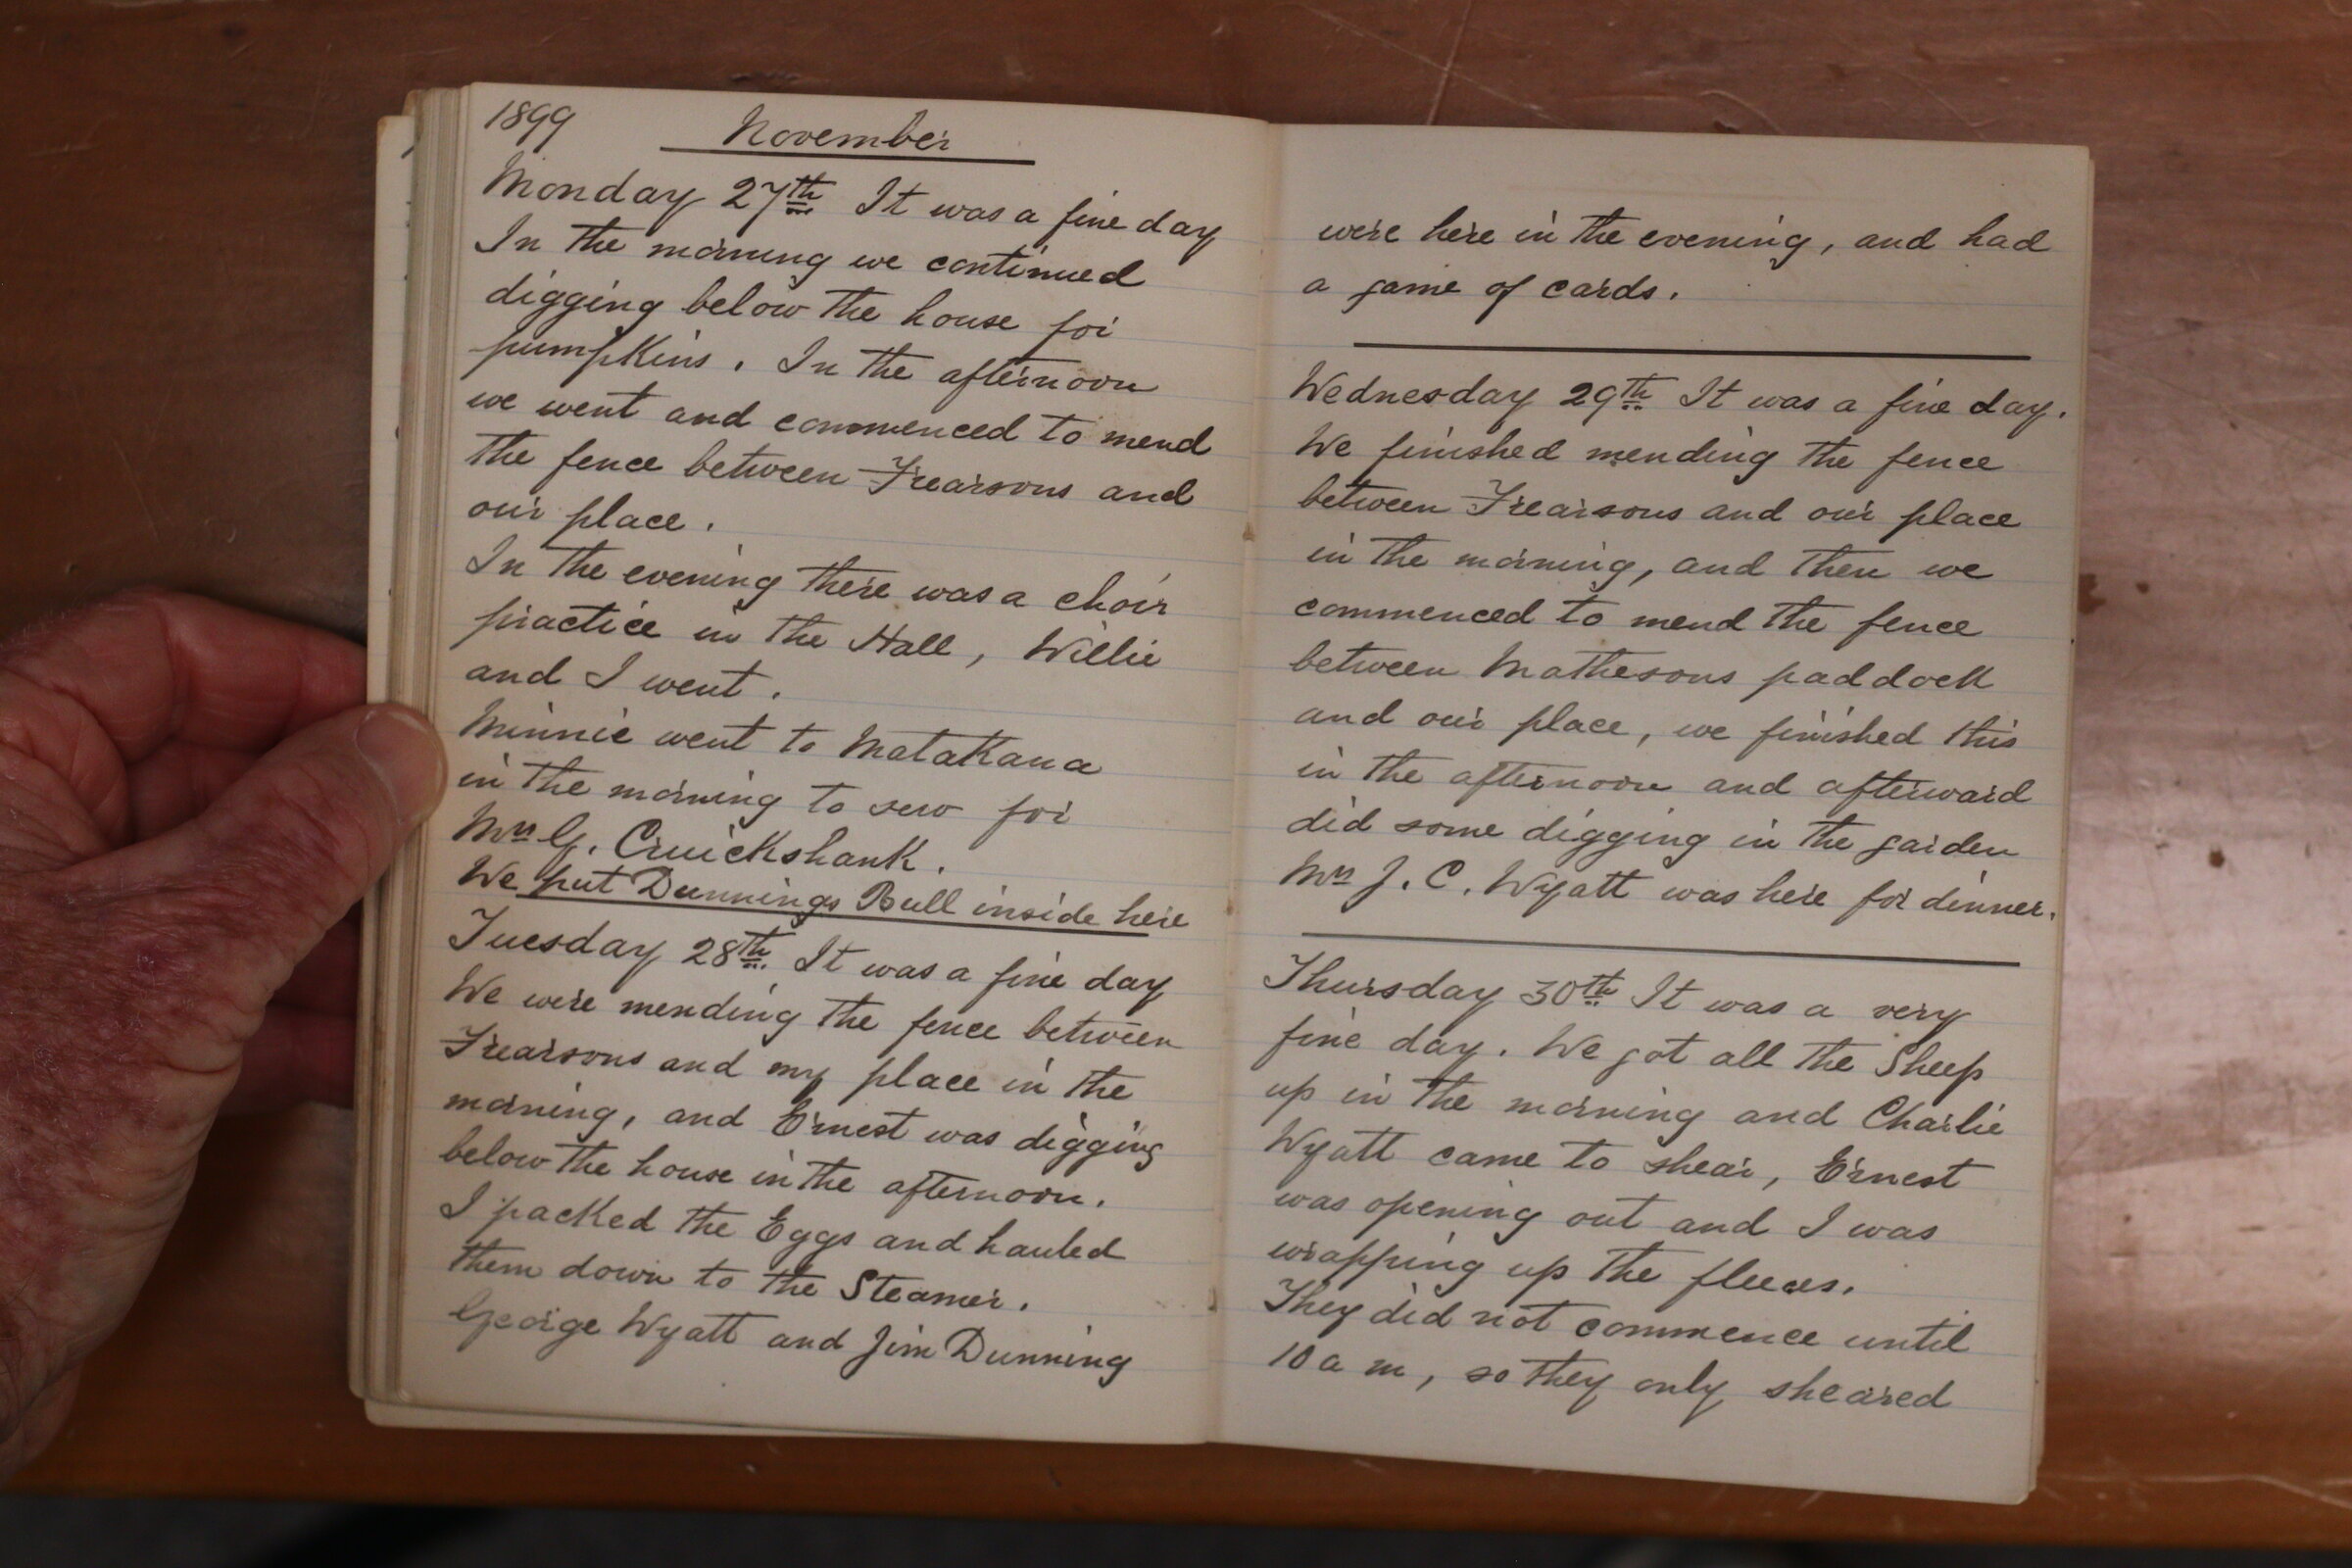 1899
November
Monday 27th It was a fine day
In the morning we continued
digging below the house for
pumpkins. In the afternoon
we went and commenced to mend
the fence between Frearsons and
our place.
In the evening there was a choir
practice in the Hall, Willie
and I went.
Minnie went to Matakana
in the morning to sew for
Mrs G. Cruickshank.
We put Dunnings Bull inside here
Tuesday 28th It was a fine day
We were mending the fence between
Frearsons and my place in the
morning, and Ernest was digging
below the house in the afternoon.
I packed the Eggs and hauled
them down to the Steamer.
George Wyatt and Jim Dunning
were here in the evening, and had
a game of cards.
Wednesday 29th It was a fine day.
We finished mending the fence
between Frearsons and our place
in the morning, and then we
commenced to mend the fence
between Mathesons paddock
and our place, we finished this
in the afternoon and afterward
did some digging in the garden
Mrs J. C. Wyatt was here for dinner.
Thursday 30th It was a very
fine day. We got all the Sheep
up in the morning and Charlie
Wyatt came to shear, Ernest
was opening out and I was
wrapping up the fleeces.
They did not commence until
10 a m, so they only sheared